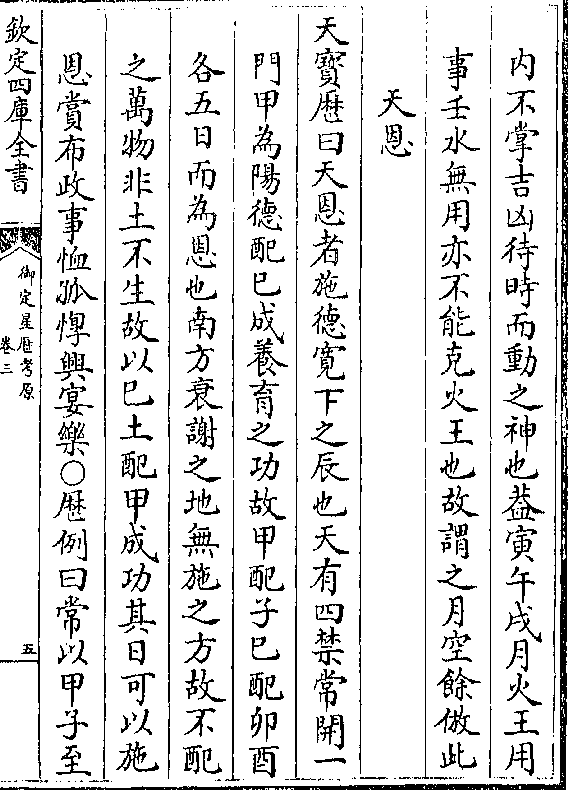 内不掌吉凶待時而動之神也葢寅午戌月火王用
事壬水無用亦不能克火王也故謂之月空餘倣此
天恩
天寳厯曰天恩者施德寛下之辰也天有四禁常開一
門甲為陽德配巳成養育之功故甲配子巳配卯酉
各五日而為恩也南方衰謝之地無施之方故不配
之萬物非土不生故以巳土配甲成功其日可以施
恩賞布政事恤孤惸興宴樂○厯例曰常以甲子至
欽定四庫全書
御定星厯考原
卷三
五